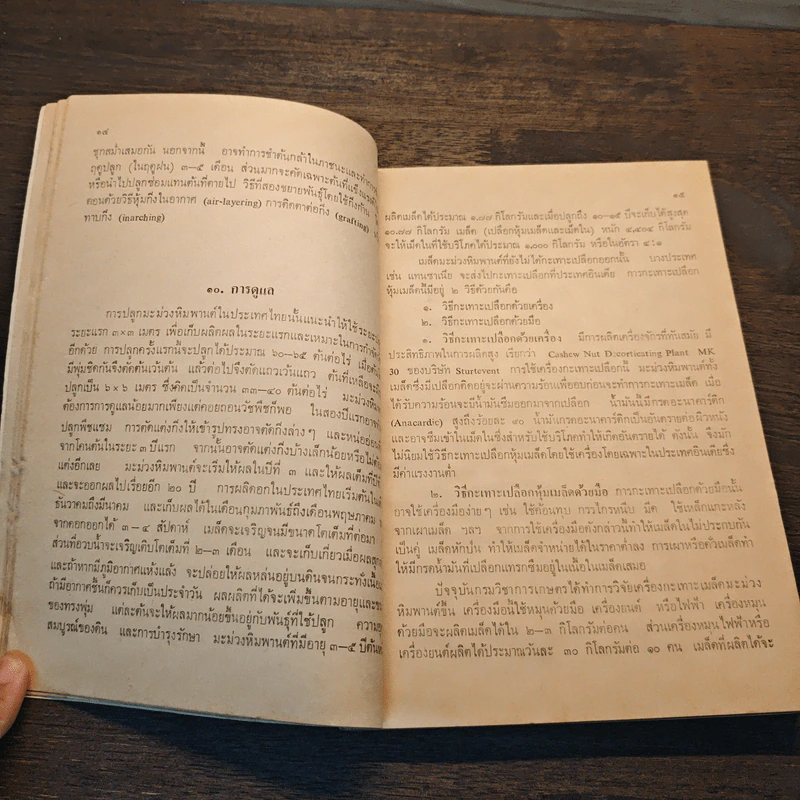 ๑๔
ชุกสม่ำเสมอกัน นอกจากนี้ อาจทำการชำต้นกล้าในภาชนะและทำการ
ฤดูปลูก (ในฤดูฝน) ๓–๕ เดือน ส่วนมากจะคัดเฉพาะต้นที่แข็งแรง
หรือนำไปปลูกซ่อมแทนต้นที่ตายไป วิธีที่สองขยายพันธุ์โดยใช้กิ่งก้าน
ตอนด้วยวิธีหุ้มกิ่งในอากาศ (air-layering) การติดตาต่อกิ่ง (grafting)
ทาบกิ่ง (inarching)
๑๐. การดูแล
การปลูกมะม่วงหิมพานต์ในประเทศไทยนั้นแนะนำให้ใช้ระยะ
ระยะแรก ๓×๓ เมตร เพื่อเก็บผลิตผลในระยะแรกและเหมาะในการกำจัด
อีกด้วย การปลูกครั้งแรกนี้จะปลูกได้ประมาณ ๖๐–๖๕ ต้นต่อไร่ เมื่อ
มีพุ่มชิดกันจึงตัดต้นเว้นต้น แล้วต่อไปจึงตัดแถวเว้นแถว ต้นที่เหลือจะ
ปลูกเป็น ๖×๖ เมตร ซึ่งคิดเป็นจำนวน ๓๓–๔๐ ต้นต่อไร่ มะม่วงหิม
ต้องการการดูแลน้อยมากเพียงแต่คอยถอนวัชพืชก็พอ ในสองปีแรกอาจ
ปลูกพืชแซม การตัดแต่งกิ่งให้เข้ารูปทรงอาจตัดกิ่งล่างๆ และหน่อย
จากโคนต้นในระยะ ๓ ปีแรก จากนั้นอาจตัดแต่งกิ่งบ้างเล็กน้อยหรือไม่
แต่งอีกเลย มะม่วงหิมพานต์จะเริ่มให้ผลในปีที่ ๓ และให้ผลเต็มที่
และจะออกผลไปเรื่อยอีก ๒๐ ปี การผลิดอกในประเทศไทยเริ่มต้นใน
ธันวาคมถึงมีนาคม และเก็บผลได้ในเดือนกุมภาพันธ์ถึงเดือนพฤษภาคม
จากดอกออกได้ ๓–๔ สัปดาห์ เมล็ดจะเจริญจนมีขนาดโตเต็มที่ต่อมา
ส่วนที่อวบน้ำจะเจริญเติบโตเต็มที่ ๒–๓ เดือน และจะเก็บเกี่ยวเมื่อผลสุก
และถ้าหากมีภูมิอากาศแห้งแล้ง จะปล่อยให้ผลหล่นอยู่บนดินจนกระทั่ง
ถ้ามีอากาศชื้นก็ควรเก็บเป็นประจำวัน ผลผลิตที่ได้จะเพิ่มขึ้นตามอายุและ
ของทรงพุ่ม แต่ละต้นจะให้ผลมากน้อยขึ้นอยู่กับพันธุ์ที่ใช้ปลูก ความ
สมบูรณ์ของดิน และการบำรุงรักษา มะม่วงหิมพานต์ที่มีอายุ ๓–๕ ปีต้น
๑๕
ผลิตเมล็ดได้ประมาณ ๑.๗๗ กิโลกรัมและเมื่อปลูกถึง ๑๐–๑๕ ปีจะเก็บได้สูงสุด
๑๐.๗๗ กิโลกรัม เมล็ด (เปลือกหุ้มเมล็ดและเม็ดใน) หนัก ๔,๔๐๔ กิโลกรัม
จะให้เม็ดในที่ใช้บริโภคได้ประมาณ ๑,๐๐๐ กิโลกรัม หรือในอัตรา ๔ : ๑
เมล็ดมะม่วงหิมพานต์ที่ยังไม่ได้กะเทาะเปลือกออกนั้น บางประเทศ
เช่น แทนซาเนีย จะส่งไปกะเทาะเปลือกที่ประเทศอินเดีย การกะเทาะเปลือก
หุ้มเมล็ดนี้มีอยู่ ๒ วิธีด้วยกันคือ
๑. วิธีกะเทาะเปลือกด้วยเครื่อง
๒. วิธีกะเทาะเปลือกด้วยมือ
๑. วิธีกะเทาะเปลือกด้วยเครื่อง มีการผลิตเครื่องจักรที่ทันสมัย มี
ประสิทธิภาพในการผลิตสูง เรียกว่า Cashew Nut Decorticating Plant MK
30 ของบริษัท Sturtevent การใช้เครื่องกะเทาะเปลือกนี้ มะม่วงหิมพานต์ทั้ง
เมล็ดซึ่งมีเปลือกติดอยู่จะผ่านความร้อนเพื่ออบก่อนจะทำการกะเทาะเมล็ด เมื่อ
ได้รับความร้อนจะมีน้ำมันซึมออกมาจากเปลือก น้ำมันนี้มีกรดอะนาคาร์ดิก
(Anacardic) สูงถึงร้อยละ ๙๐ น้ำมันกรดอะนาคาร์ดิกเป็นอันตรายต่อผิวหนัง
และอาจซึมเข้าในเม็ดในซึ่งสำหรับใช้บริโภคทำให้เกิดอันตรายได้ ดังนั้น จึงมัก
ไม่นิยมใช้วิธีกะเทาะเปลือกหุ้มเมล็ดโดยใช้เครื่องโดยเฉพาะในประเทศอินเดียซึ่ง
มีค่าแรงงานต่ำ
๒. วิธีกะเทาะเปลือกหุ้มเมล็ดด้วยมือ การกะเทาะเปลือกด้วยมือนั้น
อาจใช้เครื่องมือง่ายๆ เช่น ใช้ค้อนทุบ กรรไกรหนีบ มีด ใช้เหล็กแกะหลัง
จากเผาเมล็ด ฯลฯ จากการใช้เครื่องมือดังกล่าวนี้ทำให้เมล็ดในไม่ประกบกัน
เป็นคู่ เมล็ดหักป่น ทำให้เมล็ดจำหน่ายได้ในราคาต่ำลง การเผาหรือคั่วเมล็ดทำ
ให้มีกรดน้ำมันที่เปลือกแทรกซึมอยู่ในเนื้อในเมล็ดเสมอ
ปัจจุบันกรมวิชาการเกษตรได้ทำการวิจัยเครื่องกะเทาะเมล็ดมะม่วง
หิมพานต์ขึ้น เครื่องมือนี้ใช้หมุนด้วยมือ เครื่องยนต์ หรือไฟฟ้า เครื่องหมุน
ด้วยมือจะผลิตเมล็ดได้ใน ๒–๓ กิโลกรัมต่อคน ส่วนเครื่องหมุนไฟฟ้าหรือ
เครื่องยนต์ผลิตได้ประมาณวันละ ๓๐ กิโลกรัมต่อ ๑๐ คน เมล็ดที่ผลิตได้จะ